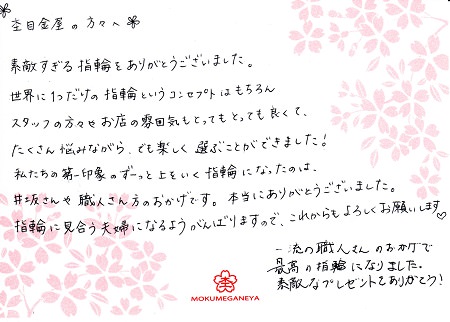 杢目金屋の方々へ
素敵すぎる指輪をありがとうございました。
世界に1つだけの指輪というコンセプトはもちろん
スタッフの方々やお店の雰囲気もとってもとっても良くて、
たくさん悩みながら、でも楽しく選ぶことができました!
私たちの第一印象のずーっと上をいく指輪になったのは、
井坂さんや職人さん方のおかげです。本当にありがとうございました。
指輪に見合う夫婦になるようがんばりますので、これからもよろしくお願いします♡
一流の職人さんのおかげで
最高の指輪になりました。
素敵なプレゼントをありがとう!
杢
MOKUMEGANEYA